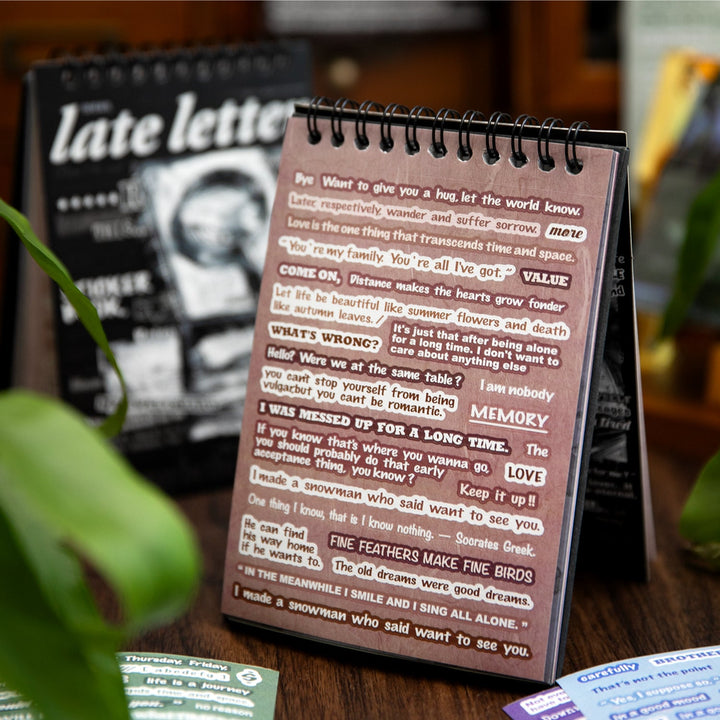 late letter
Bye Want to give you a hug, let the world know.
Later, respectively, wander and suffer sorrow. more
Love is the one thing that transcends time and space.
"You're my family. You're all I've got." VALUE
COME ON, Distance makes the hearts grow fonder
Let life be beautiful like summer flowers and death
like autumn leaves. /
WHAT'S WRONG?
It's just that after being alone
for a long time. I don't want to
care about anything else
Hello? Were we at the same table?
I am nobody
you can't stop yourself from being
vulgar,but you cant be romantic.
MEMORY
I WAS MESSED UP FOR A LONG TIME. The
If you know that's where you wanna go,
you should probably do that early
acceptance thing, you know?
LOVE
Keep it up!!
I made a snowman who said want to see you.
One thing I know, that is I know nothing. — Socrates Greek.
He can find
his way home
if he wants to.
FINE FEATHERS MAKE FINE BIRDS
The old dreams were good dreams.
"IN THE MEANWHILE I SMILE AND I SING ALL ALONE."
I made a snowman who said want to see you.
Thursday, Friday,
life is a journey
no reason
carefully BROTHER
That's not the point
Yes, I suppose so.
good mood